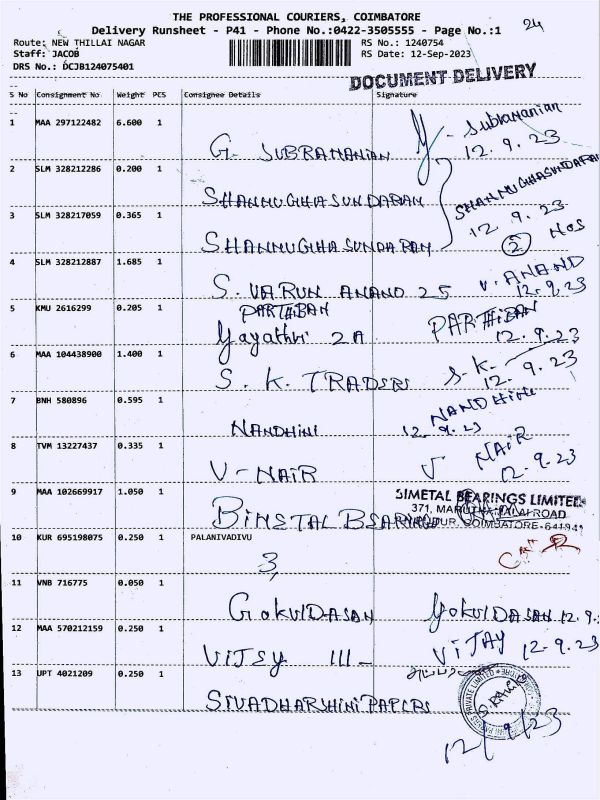 THE PROFESSIONAL COURIERS, COIMBATORE
24
Delivery Runsheet - P41 - Phone No.:0422-3505555 - Page No.:1
Route: NEW THILLAI NAGAR RS No.: 1240754
Staff: JACOB RS Date: 12-Sep-2023
DRS No.: DCJB124075401
DOCUMENT DELIVERY
S No Consignment No Weight PCS Consignee Details Signature
1 MAA 297122482 6.600 1
G. SUBRAMANIAN - Subramanian
12.9.23
2 SLM 328212286 0.200 1
SHANMUGHASUNDARAM SHANMUGHASUNDARAM
12.9.23
3 SLM 328217059 0.365 1
SHANMUGHASUNDARAM 2 NOS
4 SLM 328212887 1.685 1
S. VARUN ANAND 25 V. ANAND
12.9.23
5 KMU 2616299 0.205 1
PARTHIBAN PARTHIBAN
Gayathri 2A 12.9.23
6 MAA 104438900 1.400 1
S. K. TRADERS S.K.
12.9.23
7 BNH 580896 0.595 1
NANDHINI NANDHINI
12.9.23
8 TVM 13227437 0.335 1
V-NAIR V NAIR
12.9.23
9 MAA 102669917 1.050 1
BIMETAL BEARINGS BIMETAL BEARINGS LIMITED
371, MARUTHAMALAI ROAD
COIMBATORE-641041
10 KUR 695198075 0.250 1 PALANIVADIVU
3
11 VNB 716775 0.050 1
GOKULDASAN GOKULDASAN 12.9.
12 MAA 570212159 0.250 1
VIJSY 111- VIJAY 12-9.23
13 UPT 4021209 0.250 1
SIVADHARSHINI PAPERS
PRIVATE LIMITED
12/9/23